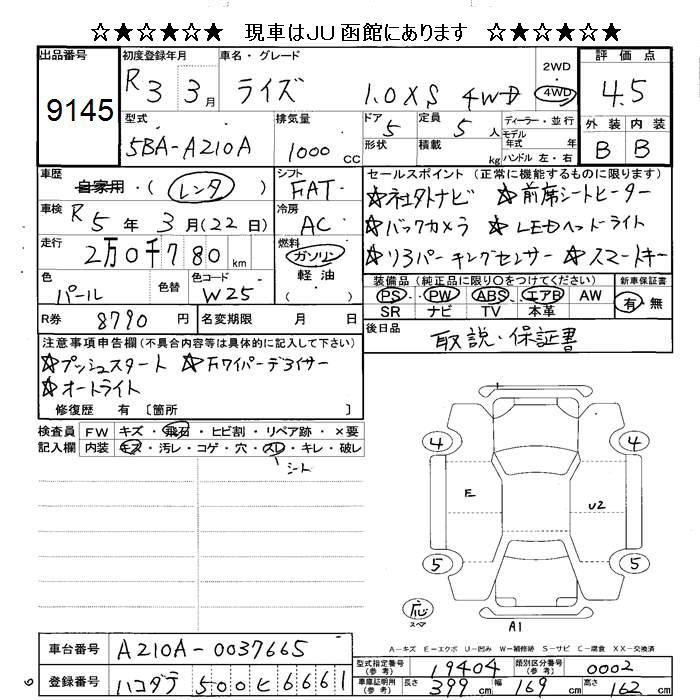 ☆★☆★☆★ 現車はJU函館にあります ☆★☆★☆★
出品番号
9145
初度登録年月
R3 3月
車名・グレード
ライズ 1.0XS 4WD
2WD
4WD
評価点
4.5
型式
5BA-A210A
排気量
1000 CC
ドア
5
形状
定員
5人
積載
kg
ディーラー・並行
モデル
年式 年
ハンドル 左・右
外装 内装
B B
車歴
自家用・(レンタ)
シフト
FAT
セールスポイント(正常に機能するものに限ります)
☆社外ナビ ☆前席シートヒーター
☆バックカメラ ☆LEDヘッドライト
☆リヤパーキングセンサー ☆スマートキー
車検
R5年3月(22日)
冷房
AC
走行
2万0千780km
燃料
ガソリン
軽油
( )
色
パール
色替
色コード
W25
装備品(純正品に限り○をつけてください)
PS PW ABS エアB AW
SR ナビ TV 本革
新車保証書
有・無
R券 8790円
名変期限 月 日
後日品
取説・保証書
注意事項申告欄(不具合内容等は具体的に記入して下さい)
☆プッシュスタート ☆Fワイパーデアイサー
☆オートライト
修復歴 有〔箇所 〕
検査員
記入欄
FW キズ・飛石・ヒビ割・リペア跡・×要
内装 キズ・汚レ・コゲ・穴・スレ・キレ・破レ
シート
4 4
E U2
5 5
応
スペア
A1
A-キズ E-エクボ U-凹み W-補修跡 S-サビ C-腐食 XX-交換済
車台番号 A210A-0037665
登録番号 ハコダテ 500 ヒ 6661
型式指定番号
(参考)
19404
類別区分番号
(参考)
0002
車庫証明用
(参考)
長さ 399cm 幅 169cm 高さ 162cm
6